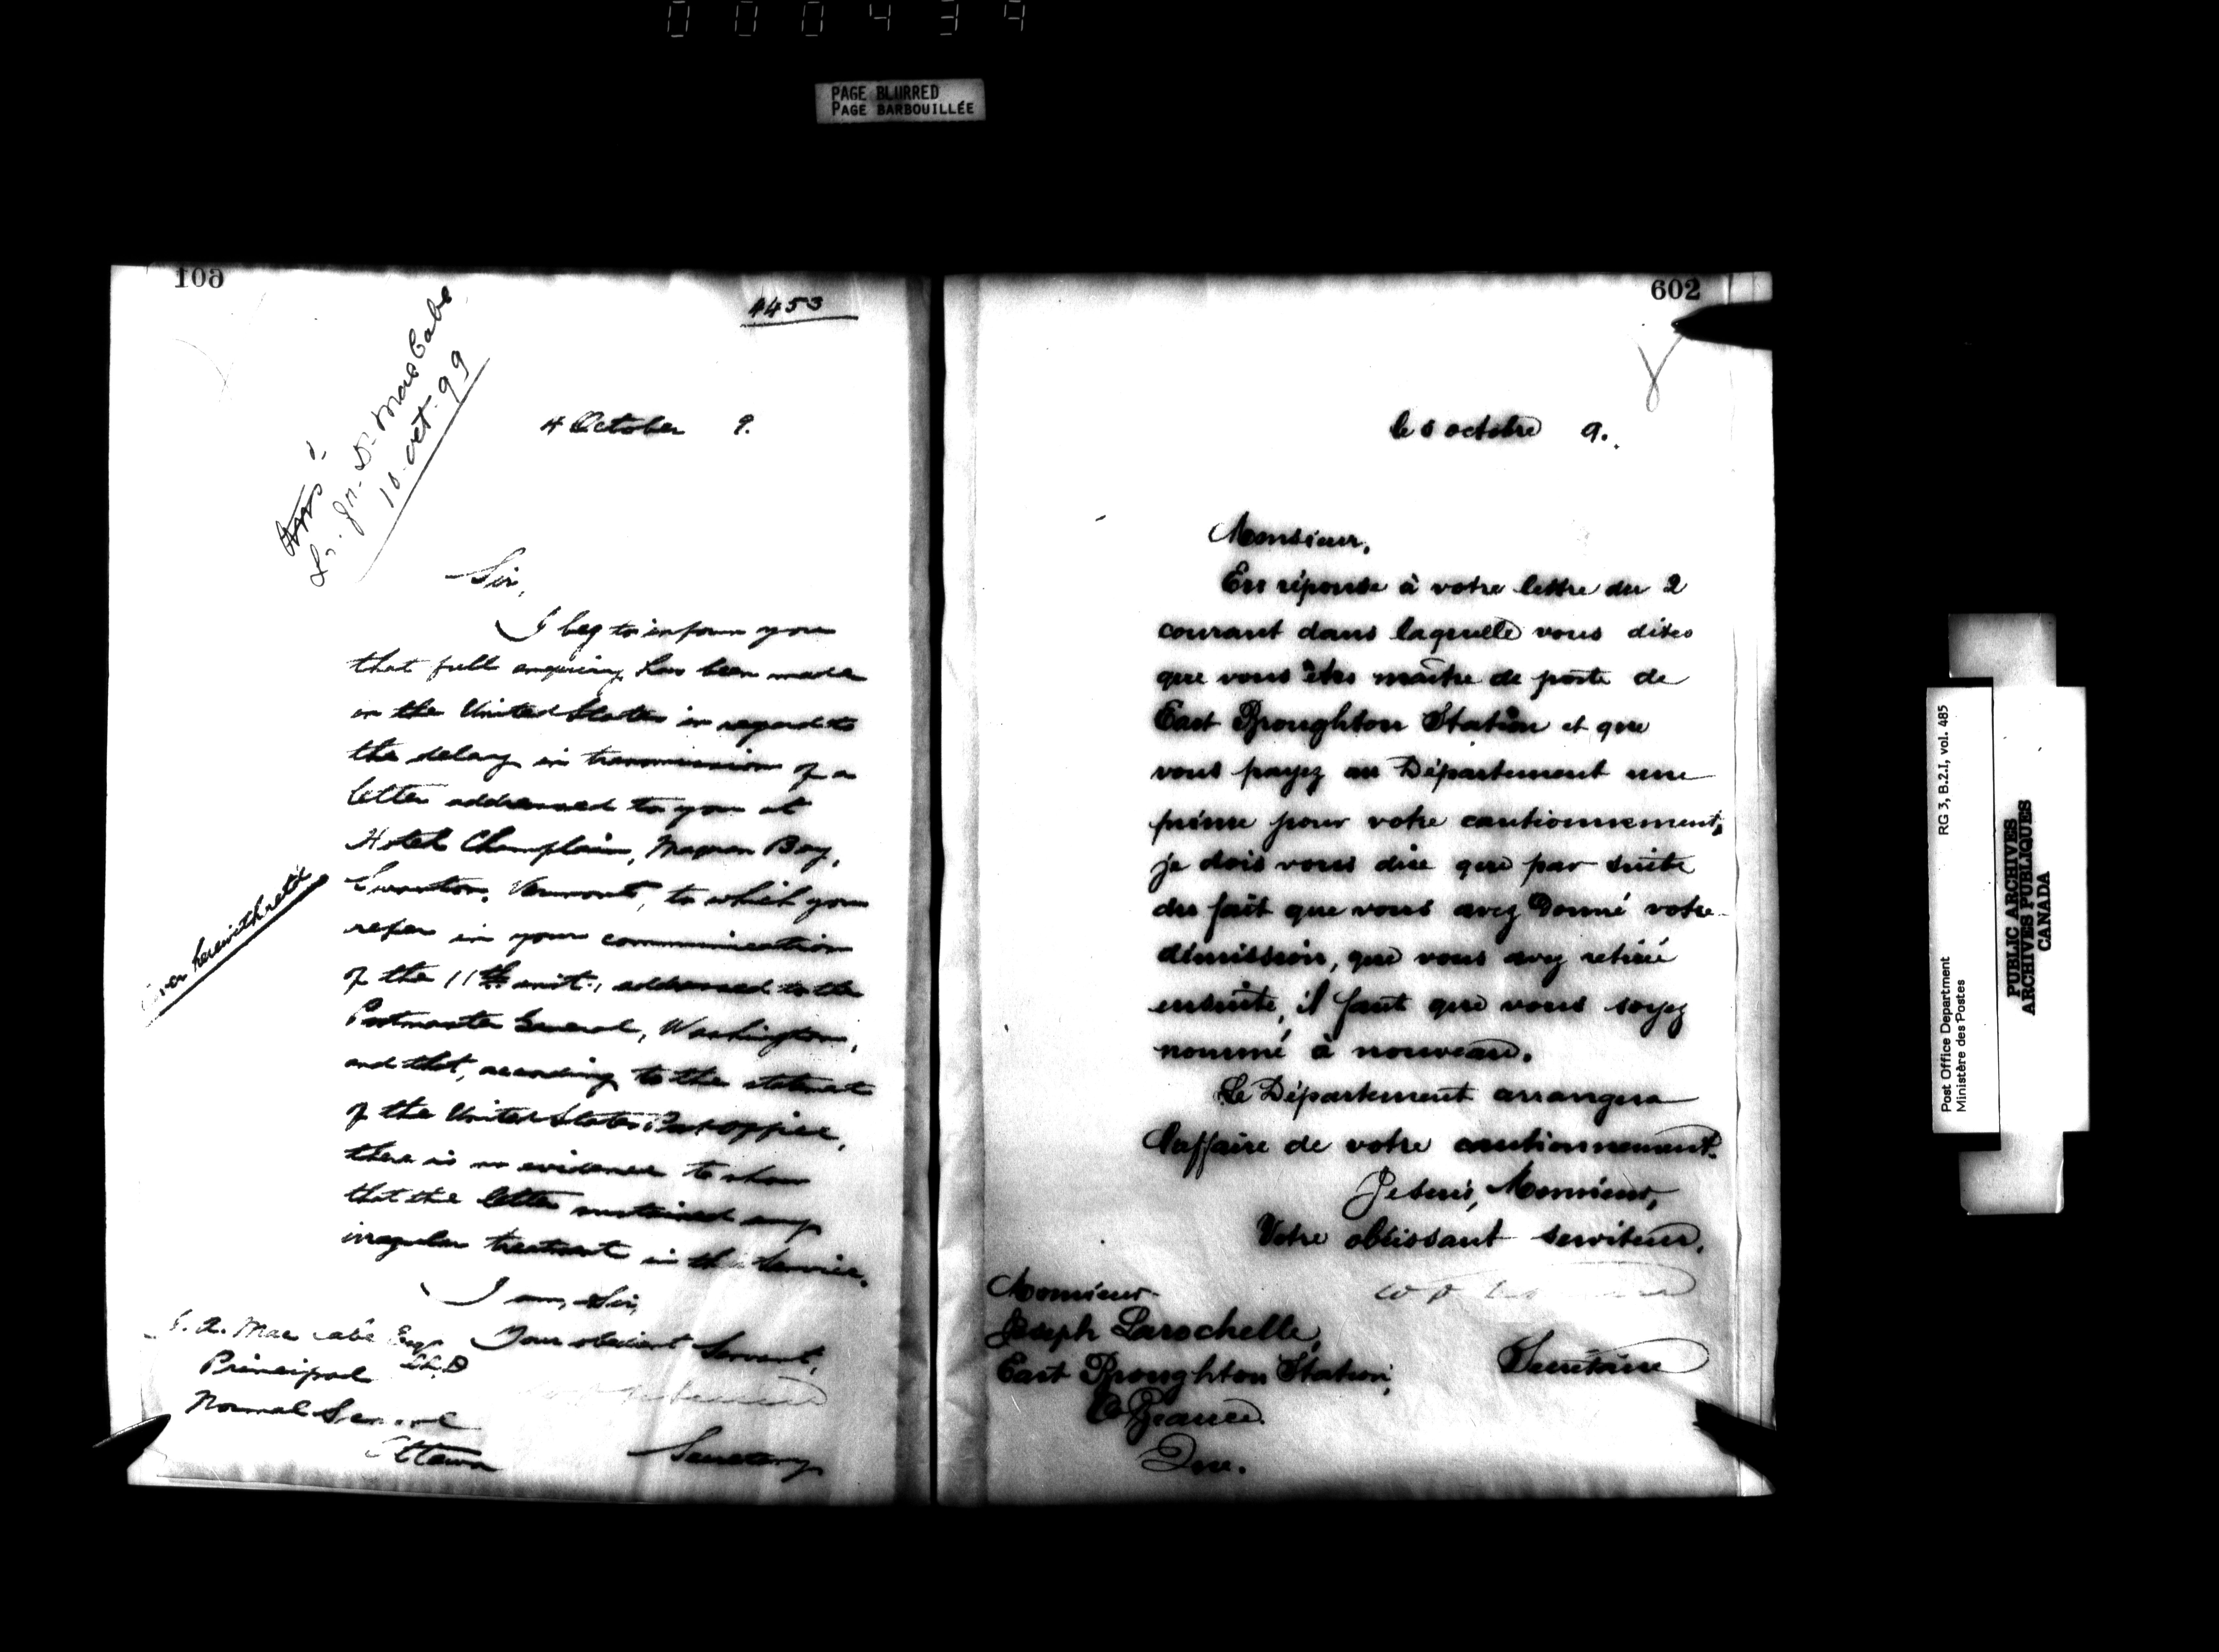 000439
PAGE BLURRED
PAGE BARBOUILLÉE
601
4453
Dr. MacCabe
10 Oct. 99
4 October 9.
Sir,
I beg to inform you
that full enquiry has been made
in the United States in regard to
the delay in transmission of a
letter addressed to you at
Hotel Champlain, Maquam Bay,
Swanton, Vermont, to which you
refer in your communication
of the 11th ult., addressed to the
Postmaster General, Washington,
and that, according to the statement
of the United States Post Office,
there is no evidence to show
that the letter sustained any
irregular treatment in the Service.
I am, Sir,
Your obedient Servant,
Secretary
herewith retd
J. A. MacCabe Esqr. LL.D
Principal
Normal School
Ottawa
602
le 5 octobre 9.
Monsieur,
En réponse à votre lettre du 2
courant dans laquelle vous dites
que vous êtes maître de poste de
East Broughton Station et que
vous payez au Département une
prime pour votre cautionnement,
je dois vous dire que par suite
du fait que vous avez donné votre
démission, que vous avez retirée
ensuite, il faut que vous soyez
nommé à nouveau.
Le Département arrangera
l'affaire de votre cautionnement.
Je suis, Monsieur,
Votre obéissant serviteur,
Secrétaire
Monsieur
Joseph Larochelle,
East Broughton Station,
Co Beauce
Que.
Post Office Department
Ministère des Postes
RG 3, B.2.I, vol. 485
PUBLIC ARCHIVES
ARCHIVES PUBLIQUES
CANADA